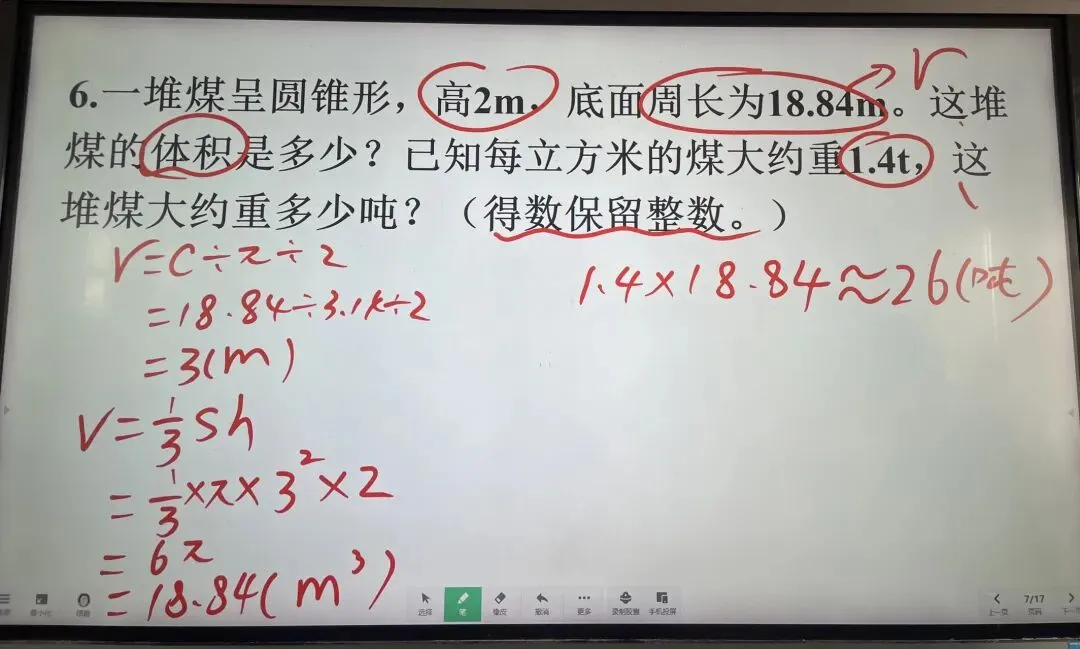 6.一堆煤呈圆锥形，高2m，底面周长为18.84m。这堆
煤的体积是多少？已知每立方米的煤大约重1.4t，这
堆煤大约重多少吨？（得数保留整数。）
r
r=C÷π÷2
=18.84÷3.14÷2
=3(m)
V=1/3Sh
=1/3×π×3²×2
=6π
=18.84(m³)
1.4×18.84≈26(吨)
最小化
选择
笔
橡皮
撤消
更多
录制胶囊
手机投屏
上一页
7/17
页码
下一